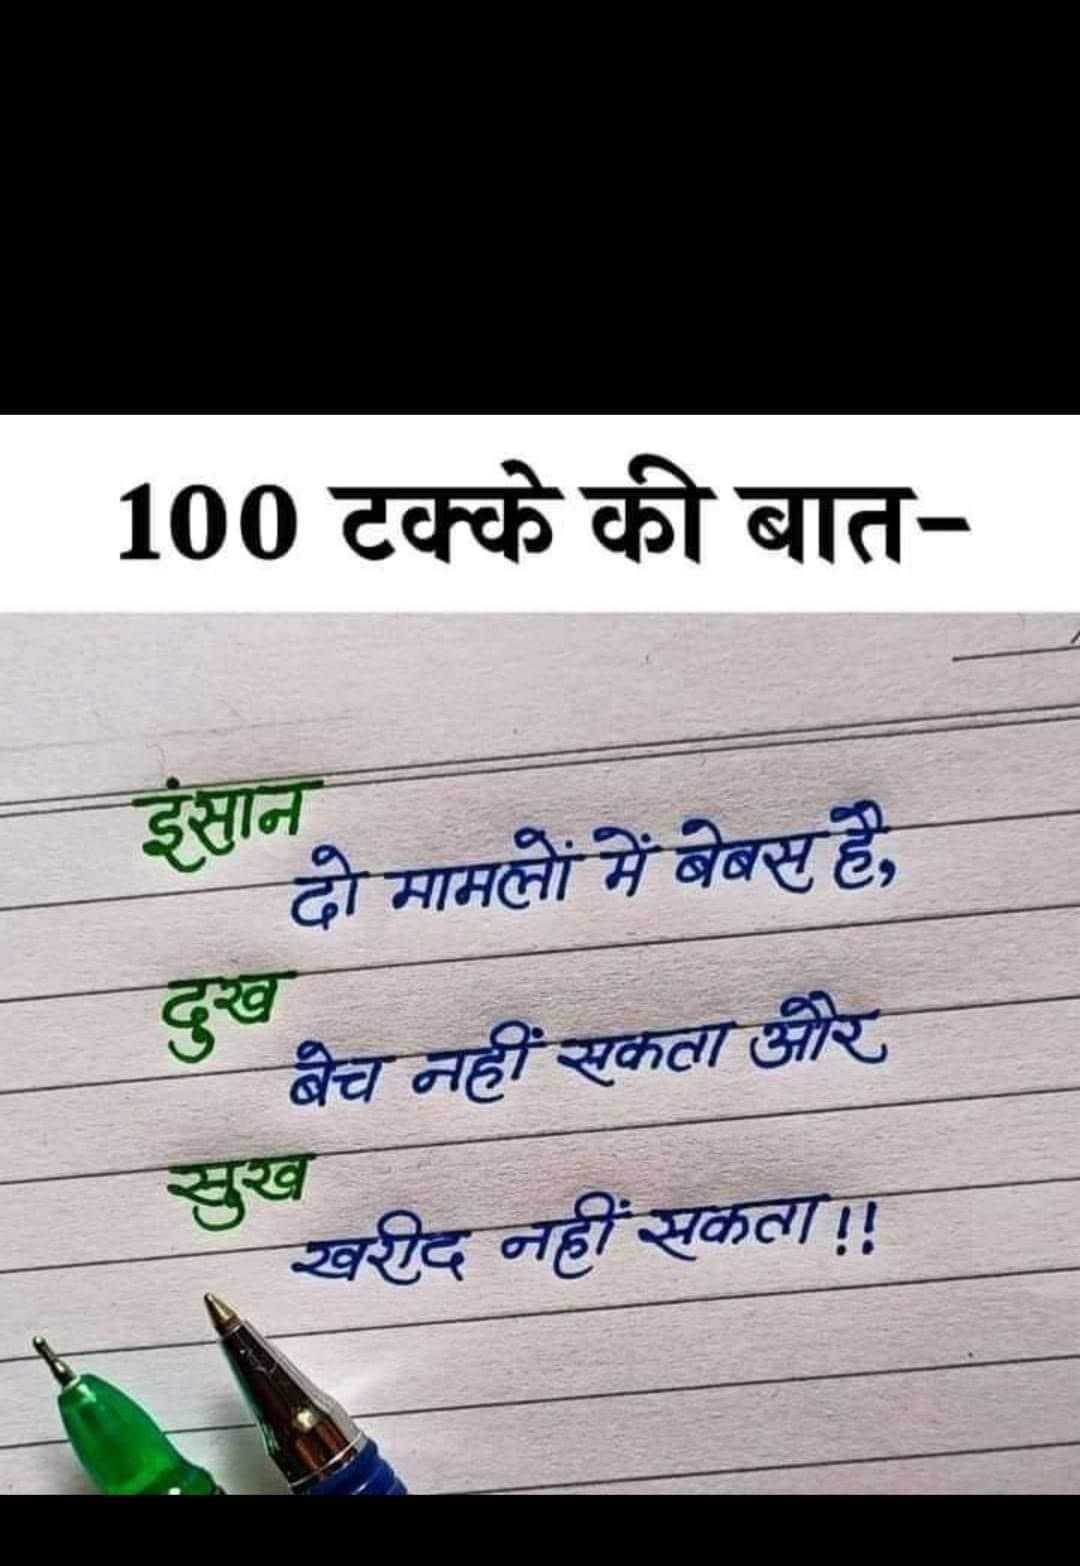 100 टक्के की बात-
इंसान
दो मामलों में बेबस है,
दुख
बेच नहीं सकता और
सुख
खरीद नहीं सकता!!